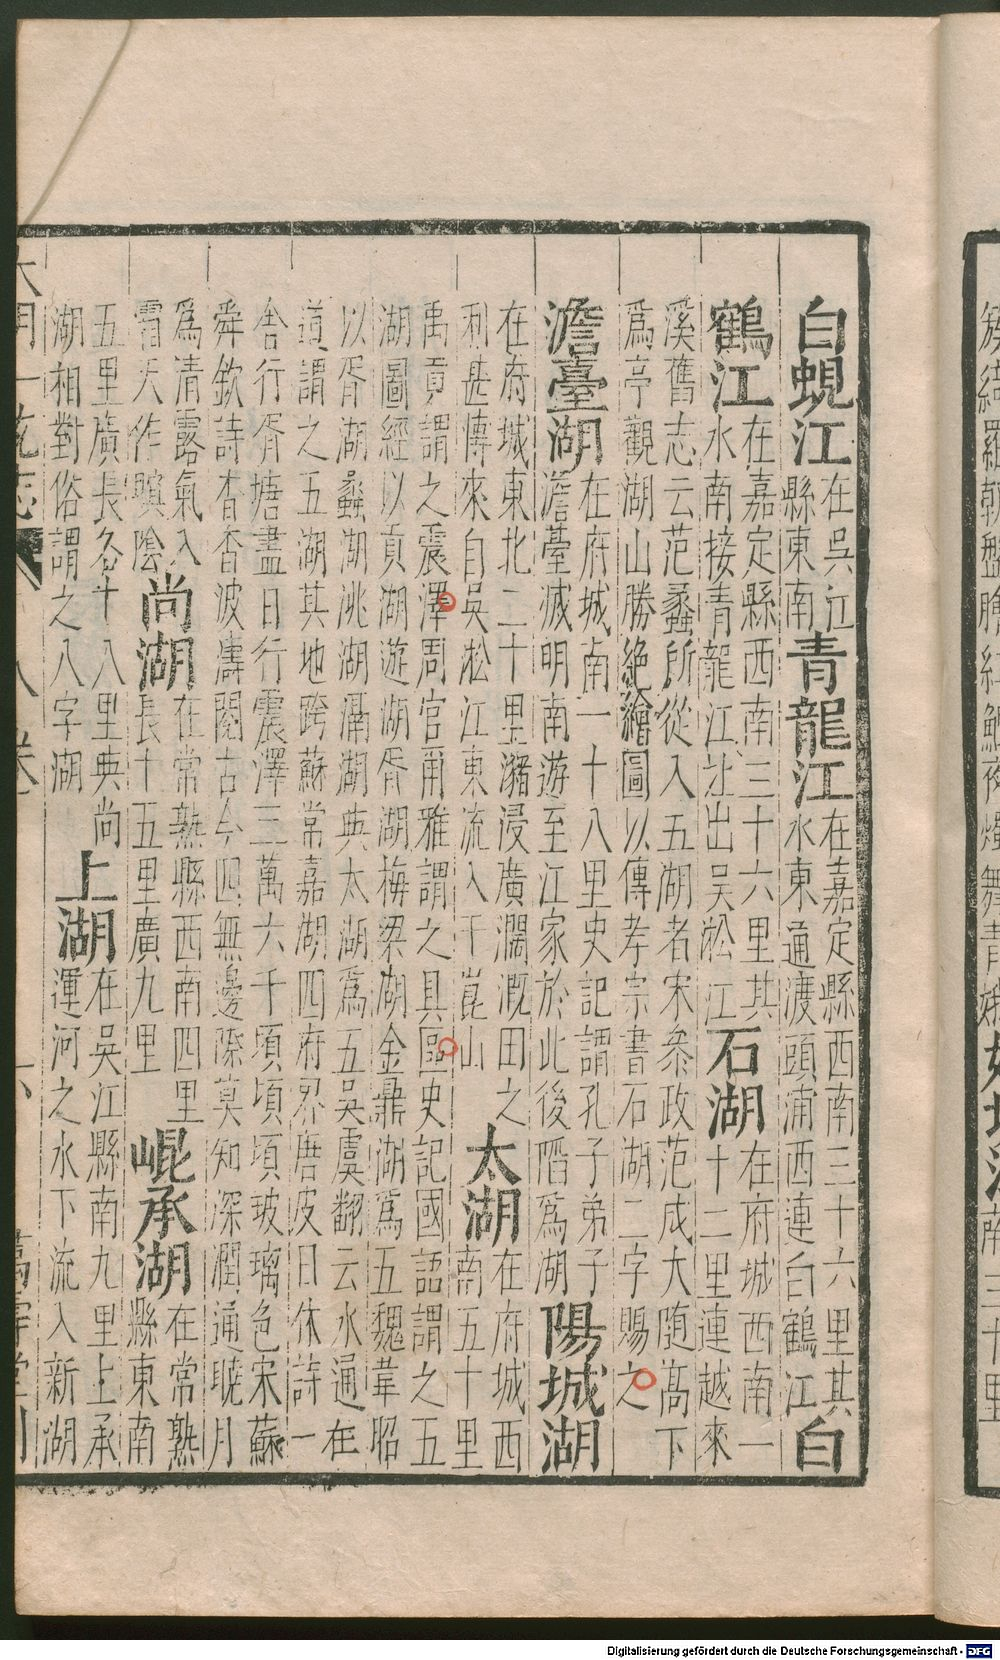 白蜆江
在吳江
縣東南
青龍江
在嘉定縣西南三十六里其
水東通渡頭浦西連白鶴江
白
鶴江
在嘉定縣西南三十六里其
水南接青龍江北出吳淞江
石湖
在府城西南一
十二里連越來
溪舊志云范蠡所從入五湖者宋叅政范成大隨高下
爲亭觀湖山勝絕繪圖以傳孝宗書石湖二字賜之
澹臺湖
在府城南一十八里史記謂孔子弟子
澹臺滅明南遊至江家於此後陷爲湖
陽城湖
在府城東北二十里瀦浸廣濶溉田之
利甚慱來自吳淞江東流入于崑山
太湖
在府城西
南五十里
禹貢謂之震澤周官爾雅謂之具區史記國語謂之五
湖圖經以貢湖遊湖胥湖梅梁湖金鼎湖爲五魏韋昭
以胥湖蠡湖洮湖滆湖與太湖爲五吳虞翻云水通在
道謂之五湖其地跨蘇常嘉湖四府界唐皮日休詩一
舍行胥塘盡日行震澤三萬六千頃頃頃玻璃色宋蘇
舜欽詩杳杳波濤閱古今四無邊際莫知深潤通曉月
爲清露氣入
霜天作暝陰
尚湖
在常熟縣西南四里
長十五里廣九里
崐承湖
在常熟
縣東南
五里廣長各十八里與尚
湖相對俗謂之八字湖
上湖
在吳江縣南九里上承
運河之水下流入新湖
大明一統志 八卷 萬壽堂刊
Digitalisierung gefördert durch die Deutsche Forschungsgemeinschaft - DFG